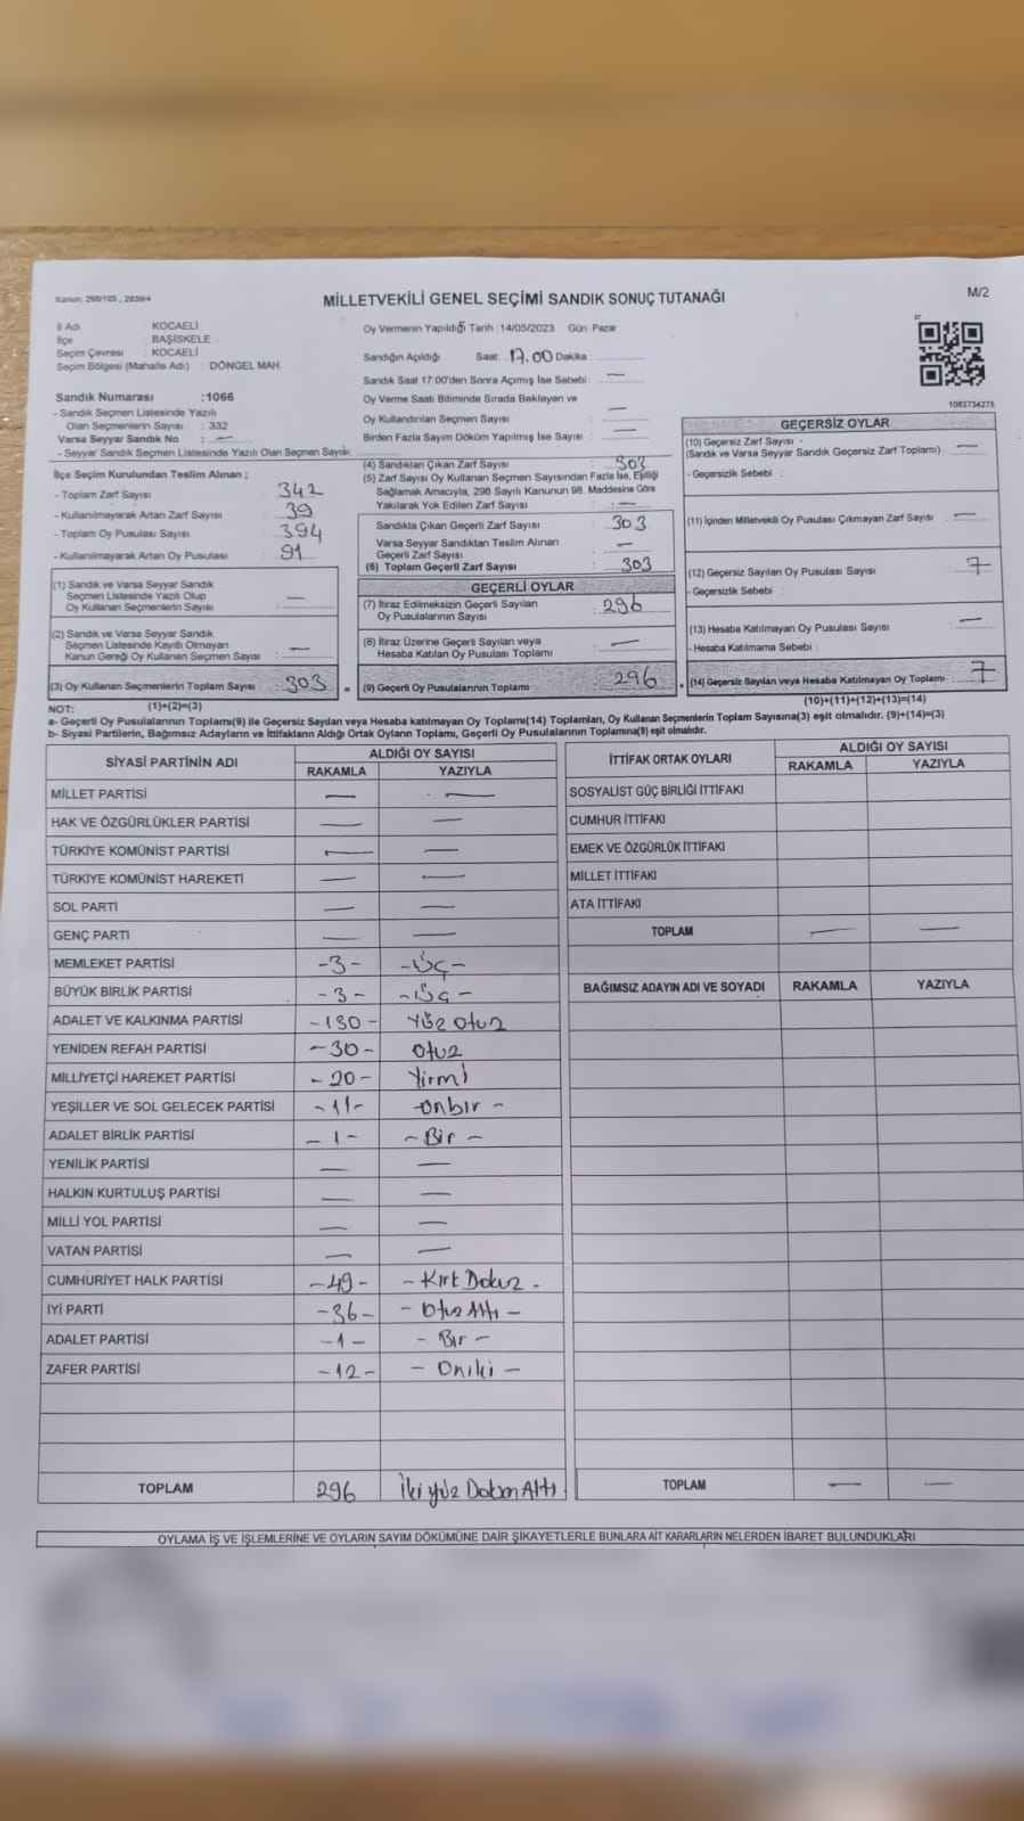 MİLLETVEKİLİ GENEL SEÇİMİ SANDIK SONUÇ TUTANAĞI
M/2
İl Adı : KOCAELİ
İlçe : BAŞİSKELE
Seçim Çevresi : KOCAELİ
Seçim Bölgesi (Mahalle Adı) : DÖNGEL MAH.
Sandık Numarası :1066
- Sandık Seçmen Listesinde Yazılı
Olan Seçmenlerin Sayısı : 332
Varsa Seyyar Sandık No : —
- Seyyar Sandık Seçmen Listesinde Yazılı Olan Seçmen Sayısı
İlçe Seçim Kurulundan Teslim Alınan ;
- Toplam Zarf Sayısı 342
- Kullanılmayarak Artan Zarf Sayısı 39
- Toplam Oy Pusulası Sayısı 394
- Kullanılmayarak Artan Oy Pusulası 91
(1) Sandık ve Varsa Seyyar Sandık
Seçmen Listesinde Yazılı Olup
Oy Kullanan Seçmenlerin Sayısı —
(2) Sandık ve Varsa Seyyar Sandık
Seçmen Listesinde Kayıtlı Olmayan
Kanun Gereği Oy Kullanan Seçmen Sayısı —
(3) Oy Kullanan Seçmenlerin Toplam Sayısı : 303
(1)+(2)=(3)
Oy Vermenin Yapıldığı Tarih :14/05/2023 Gün: Pazar
Sandığın Açıldığı Saat: 17.00 Dakika
Sandık Saat 17:00'den Sonra Açılmış İse Sebebi : —
Oy Verme Saati Bitiminde Sırada Bekleyen ve
Oy Kullandırılan Seçmen Sayısı —
Birden Fazla Sayım Döküm Yapılmış İse Sayısı : —
(4) Sandıktan Çıkan Zarf Sayısı : 303
(5) Zarf Sayısı Oy Kullanan Seçmen Sayısından Fazla İse, Eşitliği
Sağlamak Amacıyla, 298 Sayılı Kanunun 98. Maddesine Göre
Yakılarak Yok Edilen Zarf Sayısı : —
Sandıkta Çıkan Geçerli Zarf Sayısı : 303
Varsa Seyyar Sandıktan Teslim Alınan
Geçerli Zarf Sayısı —
(6) Toplam Geçerli Zarf Sayısı : 303
GEÇERLİ OYLAR
(7) İtiraz Edilmeksizin Geçerli Sayılan
Oy Pusulalarının Sayısı : 296
(8) İtiraz Üzerine Geçerli Sayılan veya
Hesaba Katılan Oy Pusulası Toplamı : —
(9) Geçerli Oy Pusulalarının Toplamı : 296
GEÇERSİZ OYLAR
(10) Geçersiz Zarf Sayısı -
(Sandık ve Varsa Seyyar Sandık Geçersiz Zarf Toplamı) —
- Geçersizlik Sebebi :
(11) İçinden Milletvekili Oy Pusulası Çıkmayan Zarf Sayısı —
(12) Geçersiz Sayılan Oy Pusulası Sayısı 7
- Geçersizlik Sebebi :
(13) Hesaba Katılmayan Oy Pusulası Sayısı —
- Hesaba Katılmama Sebebi :
(14) Geçersiz Sayılan veya Hesaba Katılmayan Oy Toplamı : 7
(10)+(11)+(12)+(13)=(14)
NOT:
a- Geçerli Oy Pusulalarının Toplamı(9) ile Geçersiz Sayılan veya Hesaba katılmayan Oy Toplamı(14) Toplamları, Oy Kullanan Seçmenlerin Toplam Sayısına(3) eşit olmalıdır. (9)+(14)=(3)
b- Siyasi Partilerin, Bağımsız Adayların ve İttifakların Aldığı Ortak Oyların Toplamı, Geçerli Oy Pusulalarının Toplamına(9) eşit olmalıdır.
SİYASİ PARTİNİN ADI ALDIĞI OY SAYISI
RAKAMLA YAZIYLA
MİLLET PARTİSİ — —
HAK VE ÖZGÜRLÜKLER PARTİSİ — —
TÜRKİYE KOMÜNİST PARTİSİ — —
TÜRKİYE KOMÜNİST HAREKETİ — —
SOL PARTİ — —
GENÇ PARTİ — —
MEMLEKET PARTİSİ -3- -Üç-
BÜYÜK BİRLİK PARTİSİ -3- -Üç-
ADALET VE KALKINMA PARTİSİ -130- Yüz otuz
YENİDEN REFAH PARTİSİ -30- Otuz
MİLLİYETÇİ HAREKET PARTİSİ -20- Yirmi
YEŞİLLER VE SOL GELECEK PARTİSİ -11- -onbir-
ADALET BİRLİK PARTİSİ -1- -Bir-
YENİLİK PARTİSİ — —
HALKIN KURTULUŞ PARTİSİ — —
MİLLİ YOL PARTİSİ — —
VATAN PARTİSİ — —
CUMHURİYET HALK PARTİSİ -49- -Kırk Dokuz-
İYİ PARTİ -36- -Otuz Altı-
ADALET PARTİSİ -1- -Bir-
ZAFER PARTİSİ -12- -Oniki-
TOPLAM 296 İkiyüz Doksan Altı
İTTİFAK ORTAK OYLARI ALDIĞI OY SAYISI
RAKAMLA YAZIYLA
SOSYALİST GÜÇ BİRLİĞİ İTTİFAKI
CUMHUR İTTİFAKI
EMEK VE ÖZGÜRLÜK İTTİFAKI
MİLLET İTTİFAKI
ATA İTTİFAKI
TOPLAM — —
BAĞIMSIZ ADAYIN ADI VE SOYADI RAKAMLA YAZIYLA
TOPLAM — —
OYLAMA İŞ VE İŞLEMLERİNE VE OYLARIN SAYIM DÖKÜMÜNE DAİR ŞİKAYETLERLE BUNLARA AİT KARARLARIN NELERDEN İBARET BULUNDUKLARI